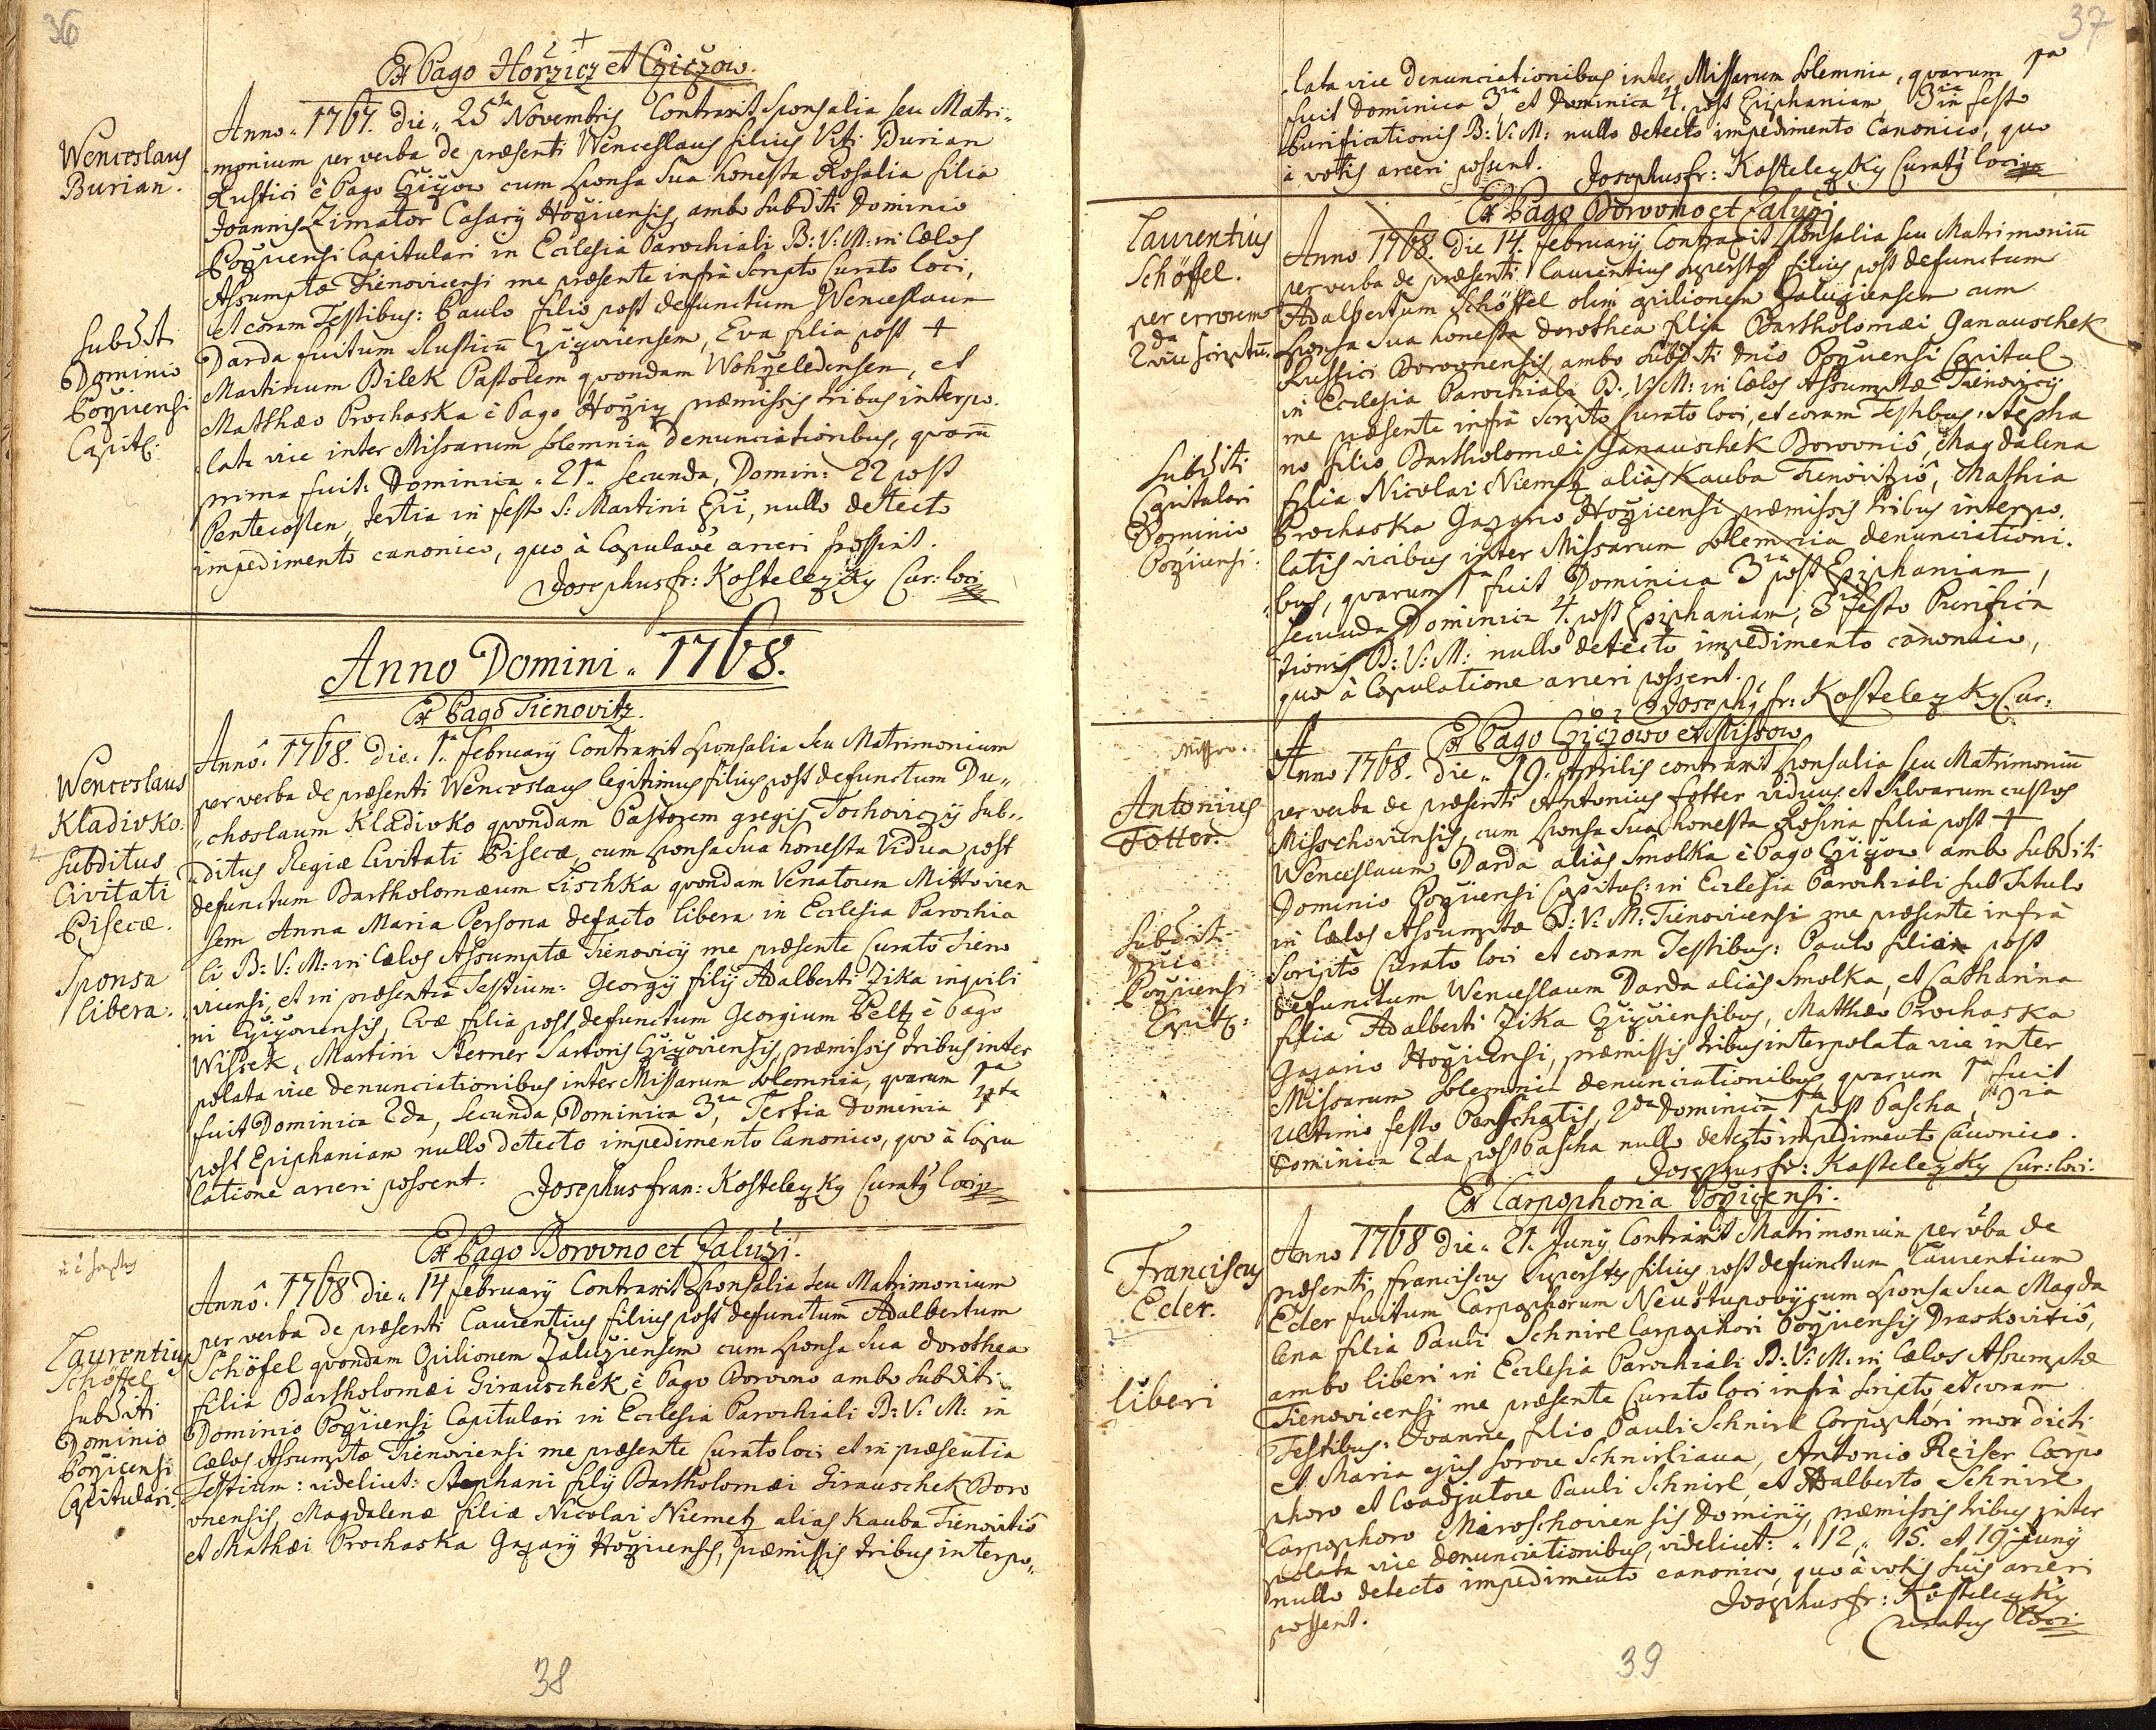 36
Ex Pago Horzicz et Cziczow.
Wenceslaus
Burian.
Subditi
Dominio
Pořicensi
Capitl:
Anno. 1767. die. 25ta Novembris Contraxit Sponsalia seu Matri-
monium per verba de præsenti Wenceslaus filius Viti Burian
Rustici è Pago Cžižow cum sponsa sua honesta Rosalia filia
Joannis Zimator Casarij Hořicensis, ambo subditi Dominio
Pořicensi Capitulari in Ecclesia Parochiali B: V: M: in Cœlos
Assumptæ Tienovicensi me præsente infrà Scripto Curato loci,
et coram Testibus: Paulo filio post defunctum Wenceslaum
Darda fuitum Rusticū Cžižoviensem, Eva filia post +
Martinum Bilek Pastorem quondam Wohzeledensem, et
Matthæo Prochaska è Pago Hořicz præmissis tribus interpo-
lata vice inter Missarum solemnia denunciationibus, quarū
prima fuit: Dominica. 21a. secunda, Domin: 22 post
Pentecosten, tertia in festo S: Martini Epi, nullo detecto
impedimento canonico, quo à Copulaõe arceri possint.
Josephus fr: Kostelezky Cur: loci
Anno Domini. 1768.
Ex Pago Tienovitz.
Wenceslaus
Kladivko.
Subditus
Civitati
Pisecæ.
Sponsa
libera.
Annô. 1768. die. 1a. february Contraxit sponsalia seu Matrimonium
per verba de præsenti Wenceslaus legitimus filius post defunctum Du-
choslaum Kladivko quondam Pastorem gregis Tochoviczij sub-
ditus Regiæ Civitati Pisecæ, cum sponsa sua honesta Vidua post
defunctum Bartholomæum Lischka quondam Venatorem Mittovicen
sem Anna Maria Persona defacto libera in Ecclesia Parochia
li B: V: M: in Cœlos Assumptæ Tienovicij me præsente Curato Tieno
vicensi, et in præsentia Testium: Georgij filij Adalberti Zika inquili
ni Cžižoviensis, Evæ filia post defunctum Georgium Peltz è Pago
Wissek, Martini Sterner Sartoris Cžižoviensis, præmissis tribus inter
polata vice denunciationibus inter Missarum solemnia, quarum 1ma
fuit Dominica 2da, secunda, Dominica 3tia, Tertia Dominica 4ta
post Epiphaniam nullo detecto impedimento Canonico, quo à Copu
latione arceri possent. Josephus fran: Kostelezky Curatꝯ loci
Ex Pago Borovno et Zaluži.
Laurentius
Schöffel
Subditi
Dominio
Pořicensi
Capitulari.
Annô. 1768 die. 14 february Contraxit Sponsalia seu Matrimonium
per verba de præsenti Laurentius filius post defunctum Adalbertum
Schöfel quondam Opilionem Zaluziensem cum sponsa sua dorothea
filia Bartholomæi Girauschek è Pago Borovno ambo subditi
Dominio Pořicensi Capitulari in Ecclesia Parochiali B: V: M: in
Cœlos Assumptæ Tienoviensi me præsente Curato loci et in præsentia
Testium: videlicet: Stephani filij Bartholomæi Girauschek Boro
vnensis, Magdalenæ filiæ Nicolai Niemetz alias Kauba Tienovitiô
et Mathæi Prochaska Gazarij Hořicensis, præmissis tribus interpo-
38
37
lata vice denunciationibus inter Missarum solemnia, quarum 1ma
fuit Dominica 3tia, et Dominica 4. post Epiphaniam, 3tia in festo
Purificationis B: V: M: nullo detecto impedimento Canonico, quo
à votis arceri possent. Josephus fr: Kostelezky Curatꝯ loci
Ex Pago Borovno et Zaluži
Laurentius
Schöffel.
per errorem
2da vice scriptū.
Subditi
Capitulari
Dominio
Pořicensi:
Anno 1768. Die 14. february Contraxit Sponsalia seu Matrimoniū
per verba de præsenti Laurentius superstes filius post defunctum
Adalbertum Schöffel olim opilionem Zaluziensem cum
sponsa sua honesta Dorothea filia Bartholomæi Ganauschek
Rustici Borovnensis ambo subditi dnio Pořicensi Capitul
in Ecclesia Parochiali B: V: M: in Cœlos Assumptæ Tienovicij
me præsente infrà scripto Curato loci, et coram Testibus: Stepha
no filio Bartholomæi Ganauschek Borovniô, Magdalena
filia Nicolai Niemetz aliàs Kauba Tienovitziô, Mathia
Prochaska Gazario Hořicensi præmissis tribus interpo-
latis vicibus inter Missarum solemnia denunciationi-
bus, quarum 1ma fuit Dominica 3tia post Epiphaniam,
secunda Dominica 4. post Epiphaniam, 3tia festo Purifica
tionis B: V: M: nullo detecto impedimento canonico,
quo à Copulatione arceri possent.
Josephꝯ fr: Kostelezky Cur:
Ex Pago Cziczowo et Missow
Missow.
Antonius
Fotter.
Subditi
Dnio
Pořicensi
Capitl:
Anno 1768. die. 19. Aprilis contraxit sponsalia seu Matrimoniū
per verba de præsenti Antonius fotter viduus et Silvarum custos
Misschoviensis, cum sponsa sua honesta Rosina filia post +
Wenceslaum Darda aliàs Smolka è Pago Cžižow ambo subditi
Dominio Pořicensi Capitul: in Ecclesia Parochiali sub Titulo
in Cœlos Assumptæ B: V: M: Tienovicensi me præsente infrà
scripto Curato loci et coram Testibus: Paulo filio post
defunctum Wenceslaum Darda aliàs Smolka, et Catharina
filia Adalberti Zika Cžižoviensibus, Matthæo Prochaska
Gazario Hořicensi, præmissis tribus interpolata vice inter
Missarum solemnia denunciationibus, quarum 1ma fuit
ultimo festo Paschatis, 2da Dominica 1ma post Pascha, 3tia
Dominica 2da post Pascha nullo detecto impedimento Canonico.
Josephus fr: Kostelezky Cur: loci.
Ex Carpophoria Pořicensi.
Franciscus
Eder.
liberi
Anno 1768 Die. 21. Junij Contraxit Matrimonium per vba de
præsenti franciscus superstes filius post defunctum Laurentium
Eder fuitum Carpophorum Neustupovij cum sponsa sua Magda
lena filia Pauli Schnirl Carpophori Pořicensis Draskovitiô,
ambo liberi in Ecclesia Parochiali B: V: M: in Cœlos Assumptæ
Tienovicensi me præsente Curato loci infrà scripto, et coram
Testibus: Joanne filio Pauli Schnirl Carpophori mox dicti
et Maria ejus sorore Schnirliana, Antonio Reiser Carpo
phoro et Coadjutore Pauli Schnirl, et Adalberto Schnirl
Carpophoro Miroschoviensis Dominij, præmissis tribus inter
polata vice denunciationibus, videlicet: 12, 15. et 19 Junij
nullo detecto impedimento canonico, quo à votis suis arceri
possent.
Josephus fr: Kostelezky
Curatus loci
39